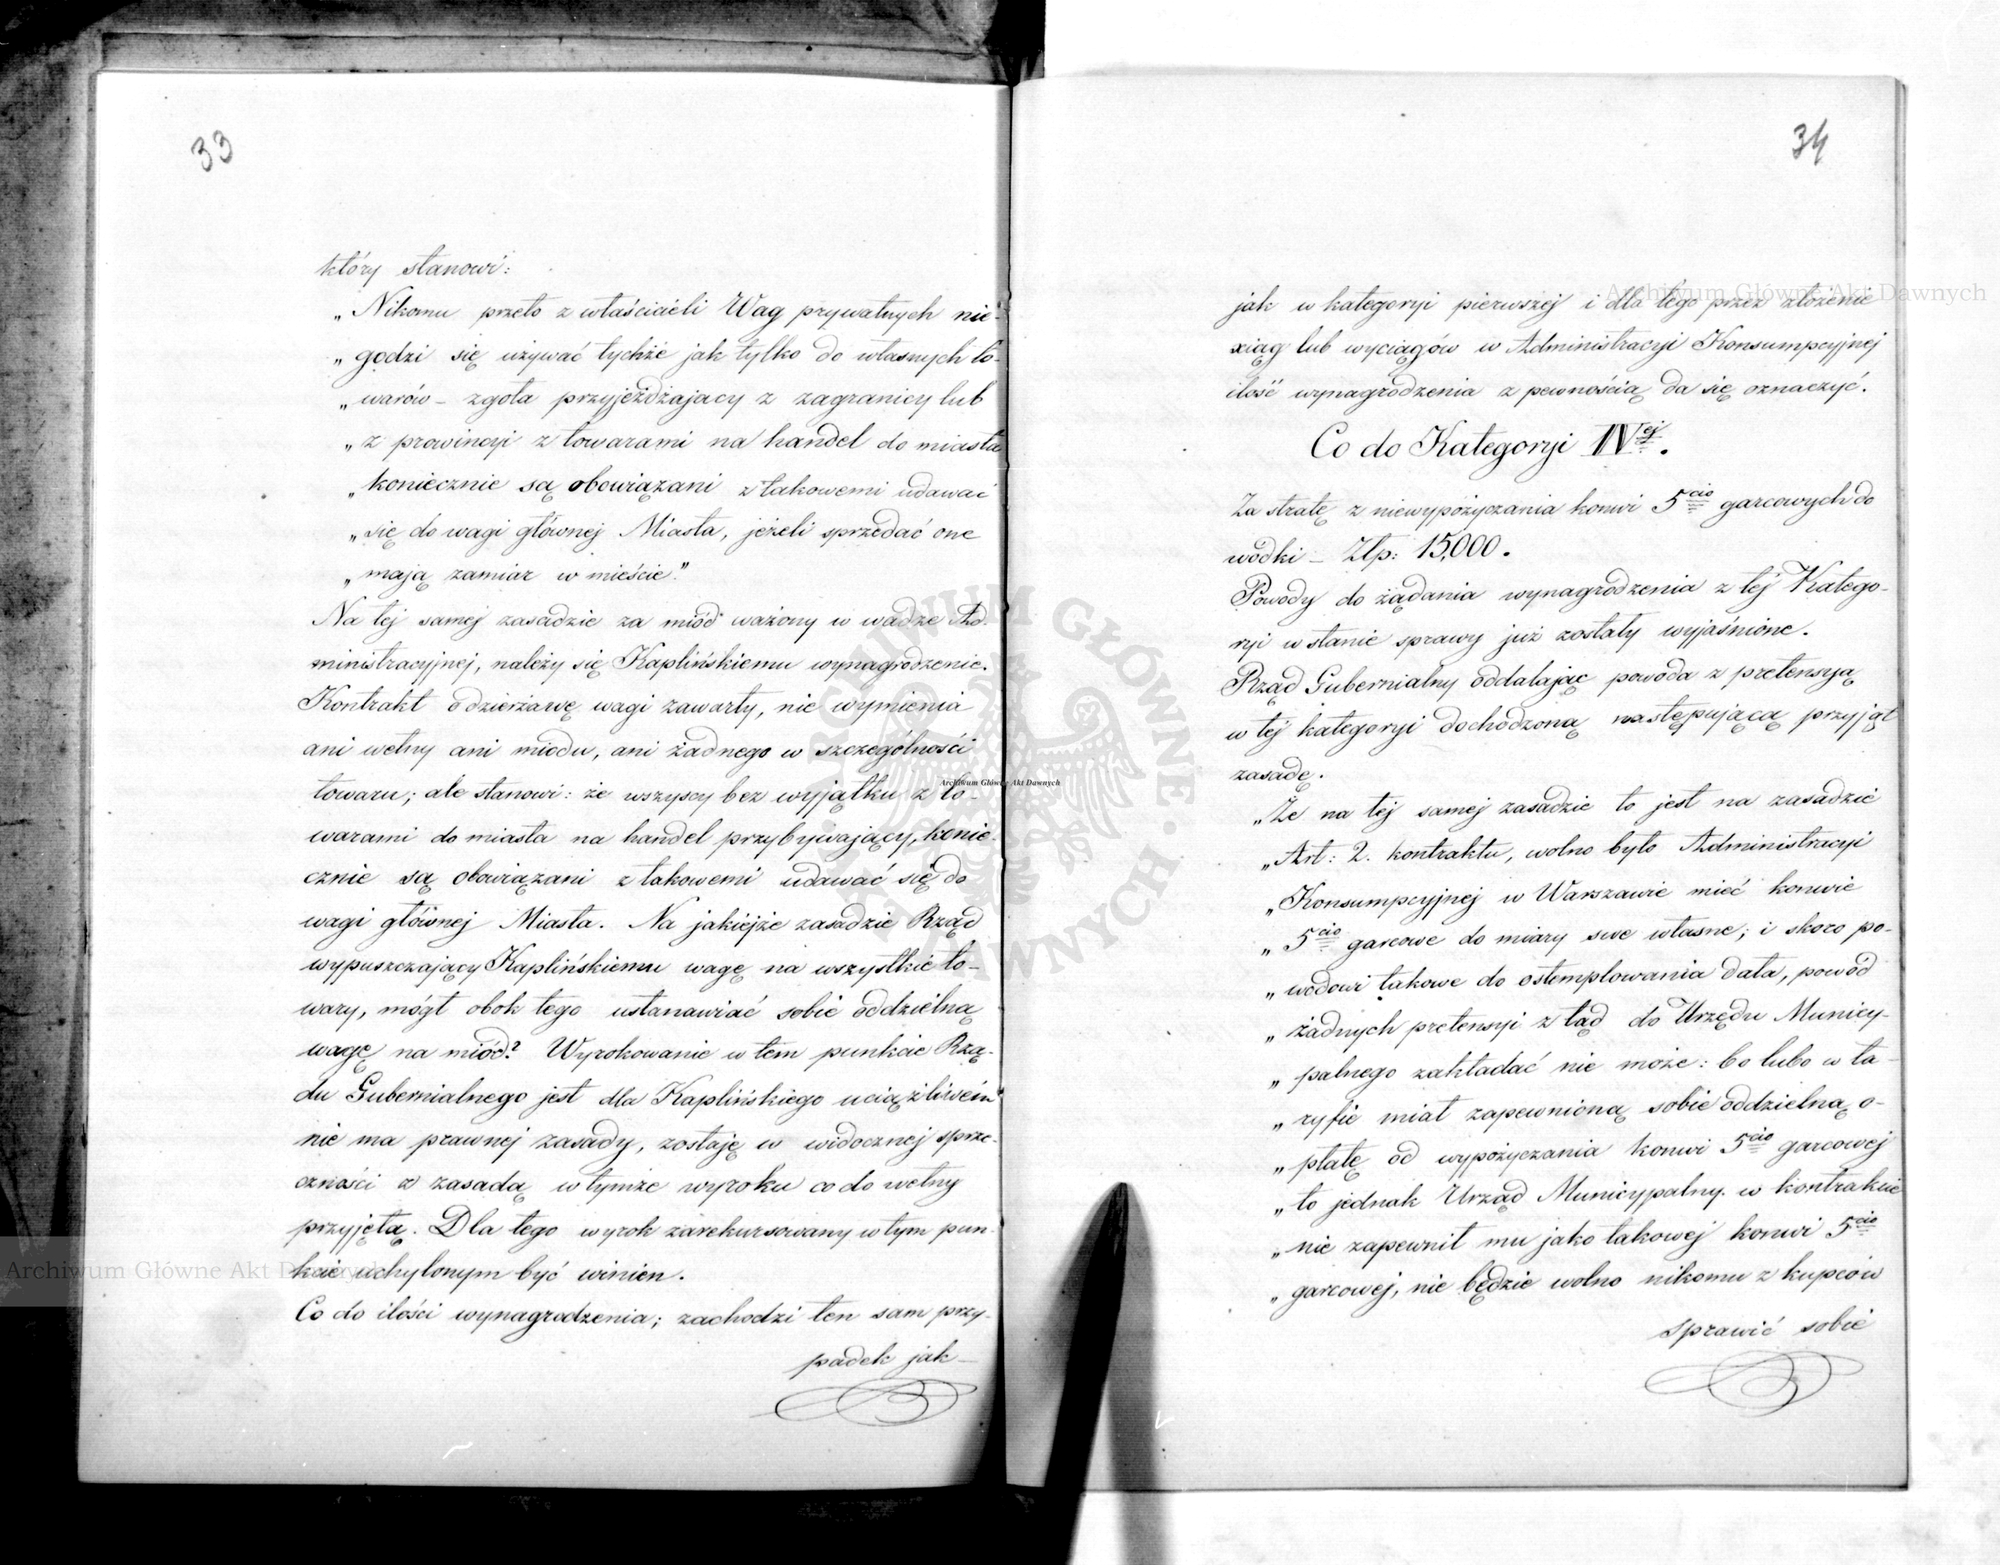 33
który stanowi:
„Nikomu przeto z właścicieli Wag prywatnych nie-
„godzi się używać tychże jak tylko do własnych to-
„warów – zgoła przyjeżdzajacy z zagranicy lub
„z prowincyi z towarami na handel do miasta
„koniecznie są obowiązani z takowemi udawać
„się do wagi głównej Miasta, jeżeli sprzedać one
„mają zamiar w mieście."
Na tej samej zasadzie za miód ważony w wadze Ad-
ministracyjnej, należy się Kaplińskiemu wynagrodzenie.
Kontrakt o dzierżawę wagi zawarty, nie wymienia
ani wełny ani miodu, ani żadnego w szczególności
towaru; ale stanowi: że wszyscy bez wyjątku z to-
warami do miasta na handel przybywający, konie-
cznie są obowiązani z takowemi udawać się do
wagi głównej Miasta. Na jakiejże zasadzie Rząd
wypuszczający Kaplińskiemu wagę na wszystkie to-
wary, mógł obok tego ustanawiać sobie oddzielną
wagę na miód? Wyrokowanie w tem punkcie Rzą-
du Gubernialnego jest dla Kaplińskiego uciążliwem
nie ma prawnej zasady, zostaję w widocznej sprze-
czności z zasadą w tymże wyroku co do wełny
przyjętą. Dla tego wyrok zarekursowany w tym pun-
kcie uchylonym być winien.
Co do ilości wynagrodzenia; zachodzi ten sam przy-
padek jak
34
jak w kategoryi pierwszej i dla tego przez złożenie
xiąg lub wyciągów w Administracyi Konsumpcyjnej
ilość wynagrodzenia z pewnością da się oznaczyć.
Co do Kategoryi IVej.
Za stratę z niewypożyczania konwi 5cio garcowych do
wódki – Złp: 15,000.
Powody do żądania wynagrodzenia z tej Katego-
ryi w stanie sprawy już zostały wyjaśnione.
Rząd Gubernialny oddalając powoda z pretensyą
w tej kategoryi dochodzoną następującą przyjął
zasadę.
„Że na tej samej zasadzie to jest na zasadzie
„Art: 2. kontraktu, wolno było Administracyi
„Konsumpcyjnej w Warszawie mieć konwie
„5cio garcowe do miary swe własne; i skoro po-
„wodowi takowe do ostemplowania dała, powód
„żadnych pretensyi z tąd do Urzędu Municy-
„palnego zakładać nie może: bo lubo w ta-
„ryfie miał zapewnioną sobie oddzielną o-
„płatę od wypożyczania konwi 5cio garcowej
„to jednak Urząd Municypalny w kontrakcie
„nie zapewnił mu jako takowej konwi 5cio
„garcowej, nie będzie wolno nikomu z kupców
sprawić sobie
Archiwum Główne Akt Dawnych
Archiwum Główne Akt Dawnych
Archiwum Główne Akt Dawnych
ARCHIWUM GŁÓWNE AKT DAWNYCH